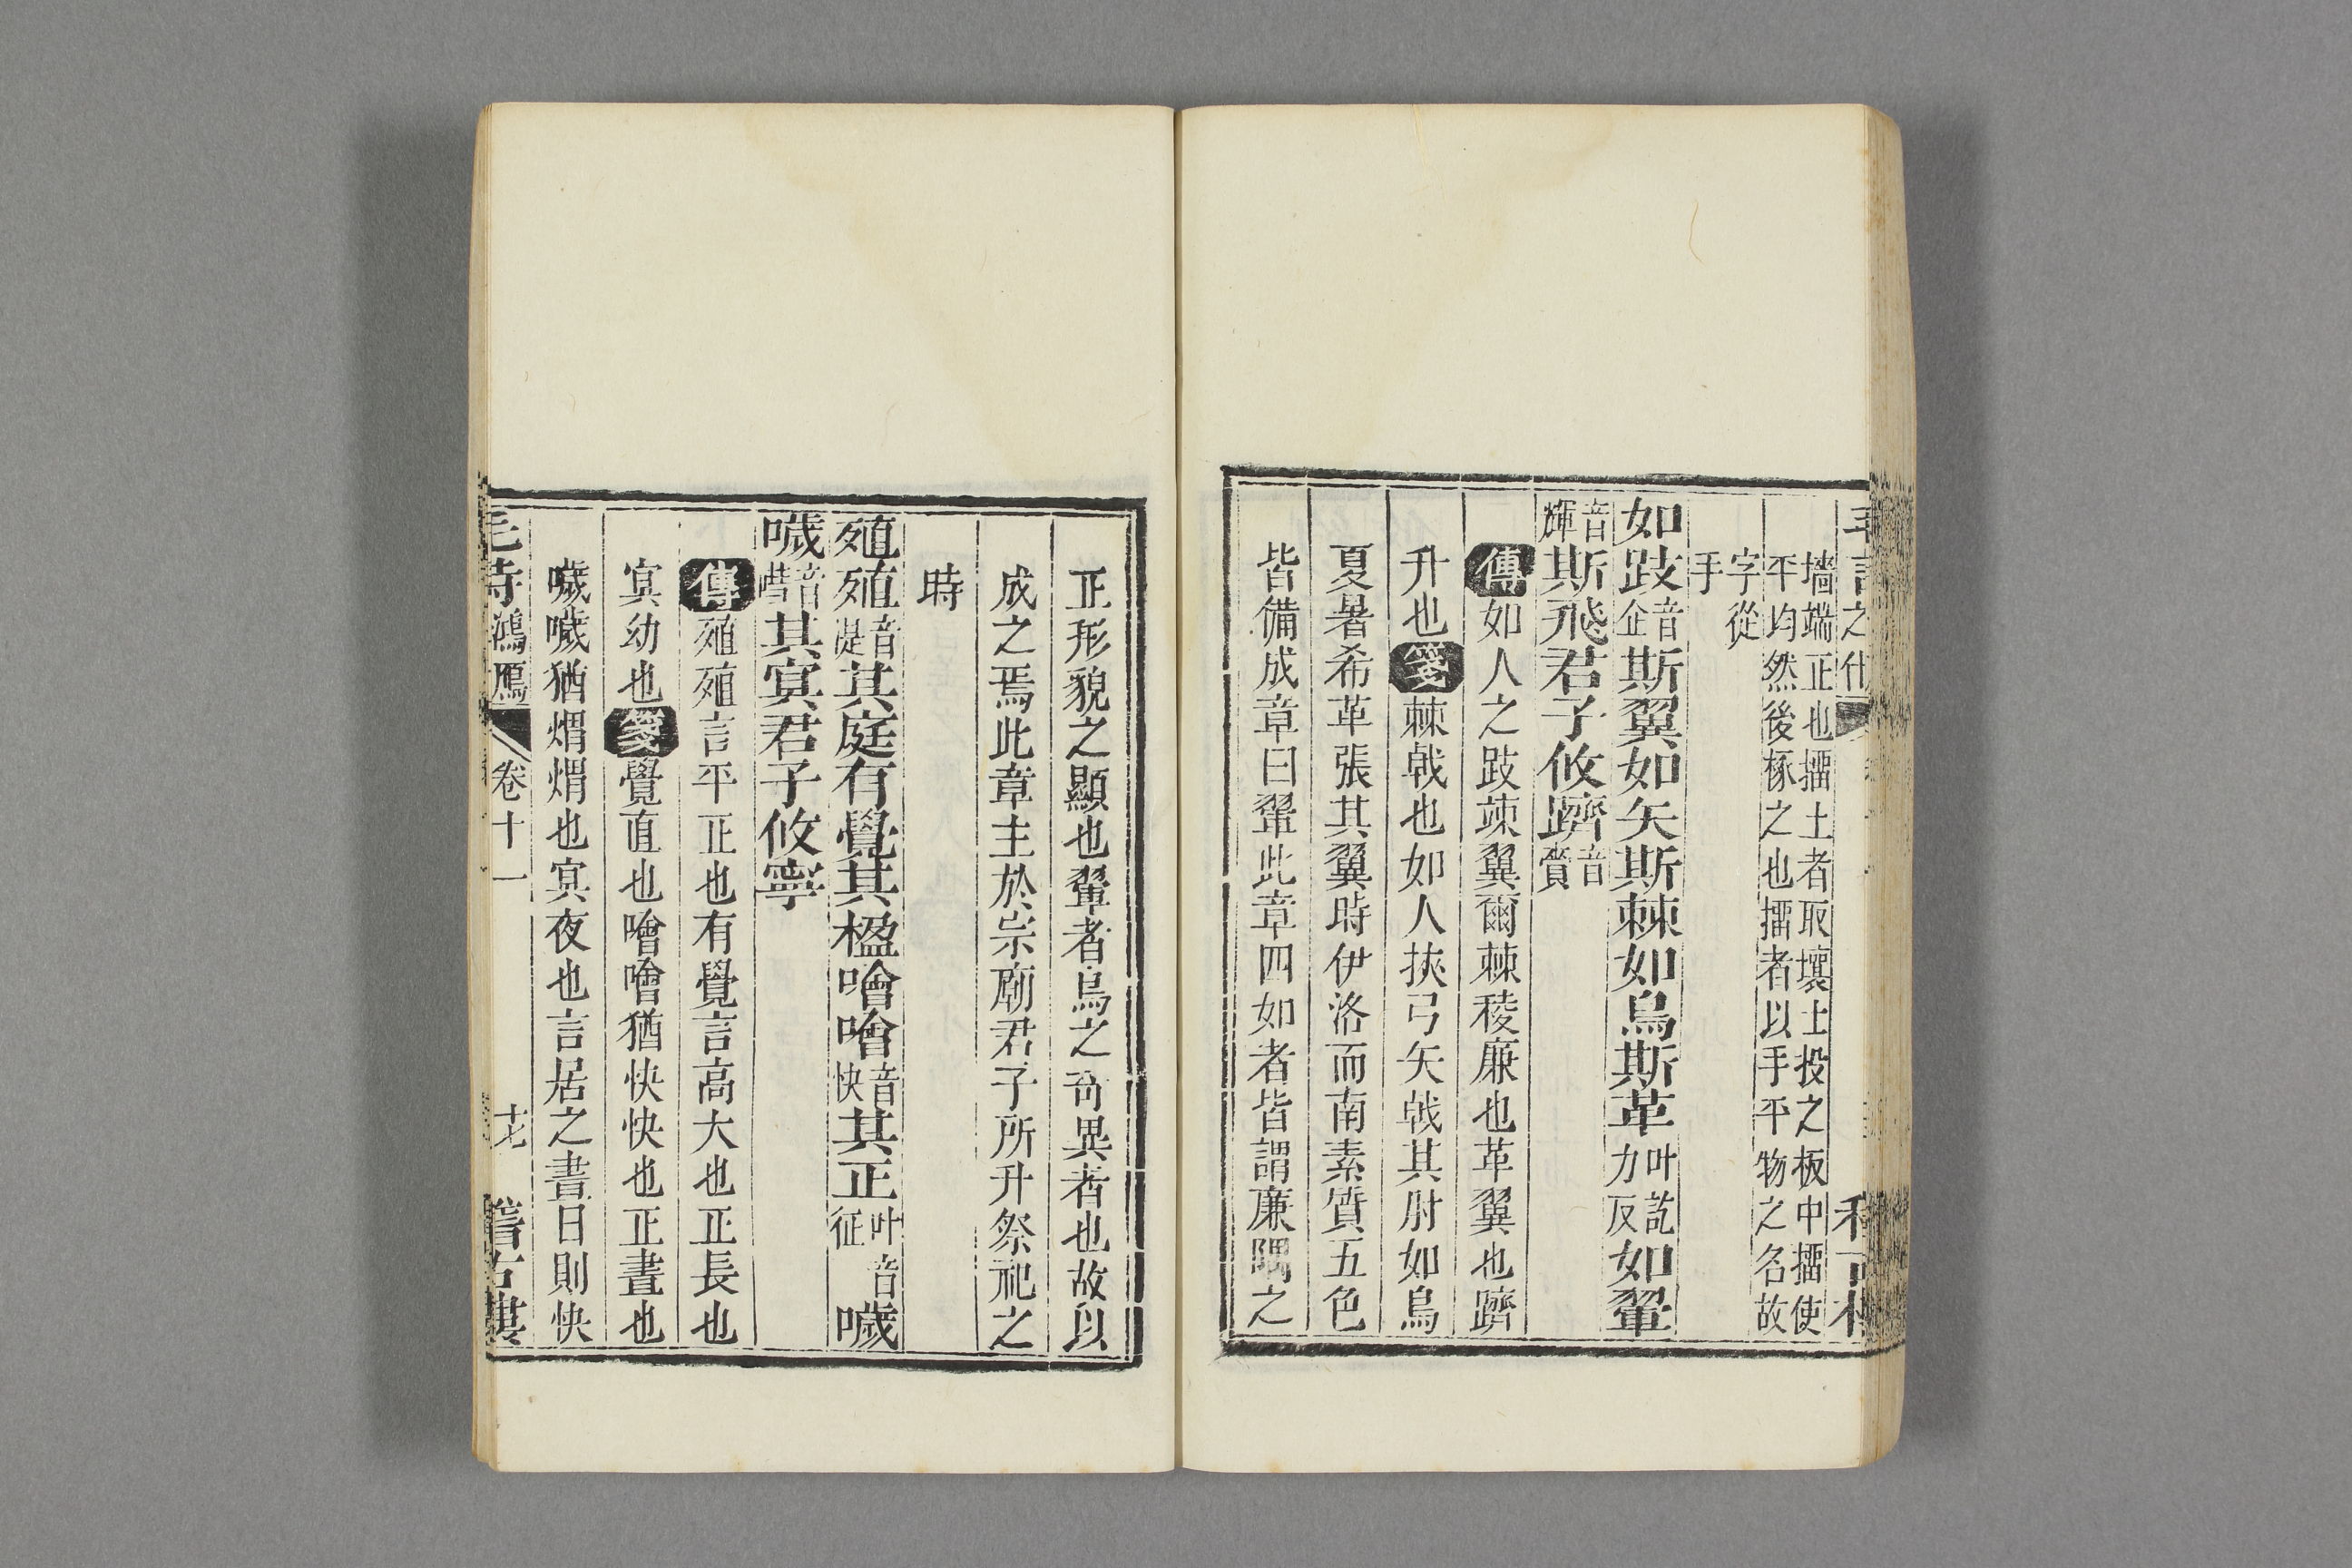 墻端正也擂土者取壤土投之板中擂使
平均然後椓之也擂者以手平物之名故
字從
手
如跂音企斯翼如矢斯棘如鳥斯革叶訖力反如翬
音輝斯飛君子攸躋音賫
傳如人之跂竦翼爾棘稜廉也革翼也躋
升也箋棘戟也如人挾弓矢戟其肘如鳥
夏暑希革張其翼時伊洛而南素質五色
皆備成章曰翬此章四如者皆謂廉隅之
正形貌之顯也翬者鳥之奇異者也故以
成之焉此章主於宗廟君子所升祭祀之
時
殖殖音湜其庭有覺其楹噲噲音快其正叶音征噦
噦音嘒其冥君子攸寧
傳殖殖言平正也有覺言高大也正長也
冥幼也箋覺直也噲噲猶快快也正晝也
噦噦猶煟煟也冥夜也言居之晝日則快
毛詩鴻鴈 卷十一 十七 稽古樓